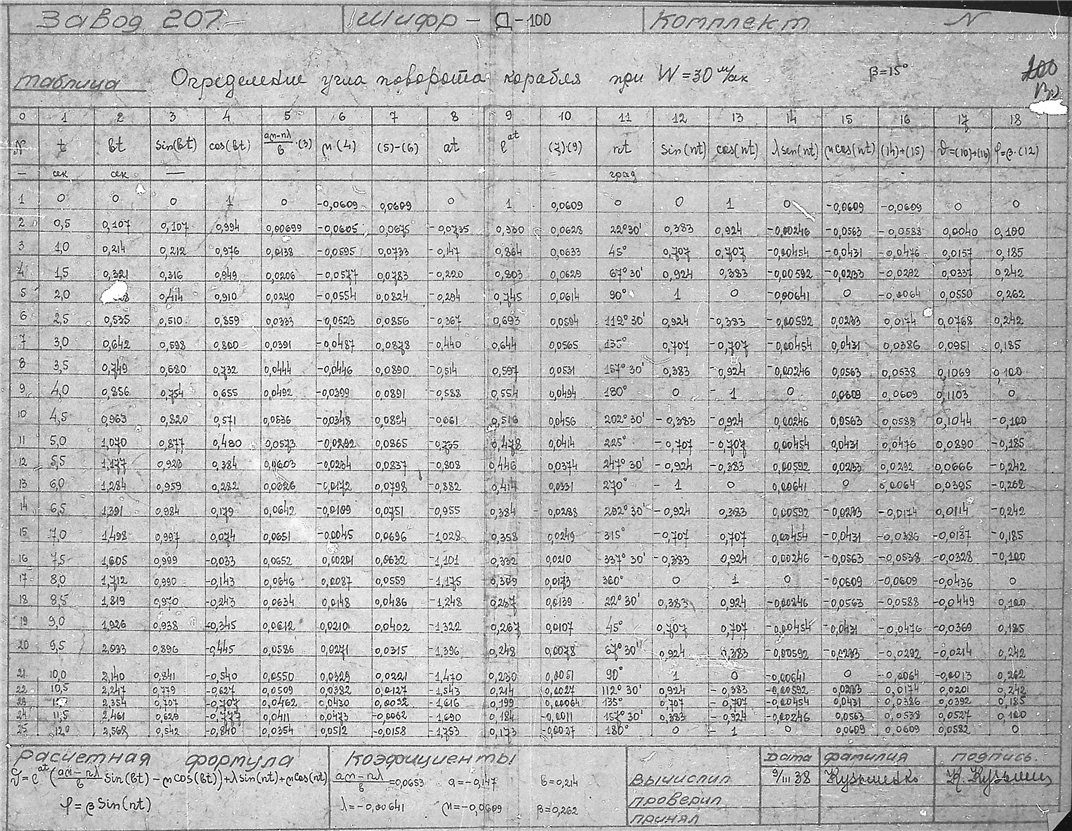 Завод 207. Шифр - Д-100 Комплект N
таблица Определение угла поворота корабля при W=30 м/сек β=15°
0 1 2 3 4 5 6 7 8 9 10 11 12 13 14 15 16 17 18
N t bt sin(bt) cos(bt) (am-nλ)/b·(3) m(4) (5)-(6) at e^at (7)(9) nt sin(nt) cos(nt) λsin(nt) mcos(nt) (14)+(15) ϑ=(10)+(16) φ=β·(12)
— сек сек — град
1 0 0 0 1 0 -0,0609 0,0609 0 1 0,0609 0 0 1 0 -0,0609 -0,0609 0 0
2 0,5 0,107 0,107 0,994 0,00699 -0,0605 0,0675 -0,0735 0,0628 22°30' 0,383 0,924 -0,00246 -0,0563 -0,0588 0,0040 0,100
3 1,0 0,214 0,212 0,976 0,0138 -0,0595 0,0733 -0,147 0,864 0,0633 45° 0,707 0,707 -0,00454 -0,0431 -0,0476 0,0157 0,185
4 1,5 0,321 0,316 0,949 0,0206 -0,0577 0,0783 -0,220 0,803 0,0629 67°30' 0,924 0,383 -0,00592 -0,0233 -0,0292 0,0337 0,242
5 2,0 0,414 0,910 0,0270 -0,0554 0,0824 -0,294 0,745 0,0614 90° 1 0 -0,00641 0 -0,0064 0,0550 0,262
6 2,5 0,535 0,510 0,859 0,0333 -0,0523 0,0856 -0,367 0,693 0,0594 112°30' 0,924 -0,383 -0,00592 0,0233 0,0174 0,0768 0,242
7 3,0 0,642 0,598 0,800 0,0391 -0,0487 0,0878 -0,440 0,644 0,0565 135° 0,707 -0,707 -0,00454 0,0431 0,0386 0,0951 0,185
8 3,5 0,749 0,680 0,732 0,0444 -0,0446 0,0890 -0,514 0,597 0,0531 157°30' 0,383 -0,924 -0,00246 0,0563 0,0538 0,1069 0,100
9 4,0 0,856 0,754 0,655 0,0492 -0,0399 0,0891 -0,588 0,554 0,0494 180° 0 -1 0 0,0609 0,0609 0,1103 0
10 4,5 0,963 0,820 0,571 0,0536 -0,0348 0,0884 -0,661 0,516 0,0456 202°30' -0,383 -0,924 0,00246 0,0563 0,0588 0,1044 -0,100
11 5,0 1,070 0,877 0,480 0,0573 -0,0292 0,0865 -0,735 0,478 0,0414 225° -0,707 -0,707 0,00454 0,0431 0,0476 0,0890 -0,185
12 5,5 1,177 0,923 0,384 0,0603 -0,0234 0,0837 -0,808 0,446 0,0374 247°30' -0,924 -0,383 0,00592 0,0233 0,0292 0,0666 -0,242
13 6,0 1,284 0,959 0,282 0,0626 -0,0172 0,0798 -0,882 0,414 0,0331 270° -1 0 0,00641 0 0,0064 0,0395 -0,262
14 6,5 1,391 0,984 0,179 0,0642 -0,0109 0,0751 -0,955 0,384 0,0288 292°30' -0,924 0,383 0,00592 -0,0233 -0,0174 0,0114 -0,242
15 7,0 1,498 0,997 0,074 0,0651 -0,0045 0,0696 -1,028 0,358 0,0249 315° -0,707 0,707 0,00454 -0,0431 -0,0386 -0,0137 -0,185
16 7,5 1,605 0,999 -0,033 0,0652 0,00201 0,0632 -1,101 0,332 0,0210 337°30' -0,383 0,924 0,00246 -0,0563 -0,0538 -0,0328 -0,100
17 8,0 1,712 0,990 -0,143 0,0646 0,0087 0,0559 -1,175 0,309 0,0173 360° 0 1 0 -0,0609 -0,0609 -0,0436 0
18 8,5 1,819 0,970 -0,243 0,0634 0,0148 0,0486 -1,248 0,287 0,0139 22°30' 0,383 0,924 -0,00246 -0,0563 -0,0588 -0,0449 0,100
19 9,0 1,926 0,938 -0,345 0,0612 0,0210 0,0402 -1,322 0,267 0,0107 45° 0,707 0,707 -0,00454 -0,0431 -0,0476 -0,0369 0,185
20 9,5 2,033 0,896 -0,445 0,0586 0,0271 0,0315 -1,396 0,248 0,0078 67°30' 0,924 0,383 -0,00592 -0,0233 -0,0292 -0,0214 0,242
21 10,0 2,140 0,841 -0,540 0,0550 0,0329 0,0221 -1,470 0,230 0,0051 90° 1 0 -0,00641 0 -0,0064 -0,0013 0,262
22 10,5 2,247 0,779 -0,627 0,0509 0,0382 0,0127 -1,543 0,214 0,0027 112°30' 0,924 -0,383 -0,00592 0,0233 0,0174 0,0201 0,242
23 2,354 0,707 -0,707 0,0462 0,0430 0,0032 -1,616 0,199 0,00064 135° 0,707 -0,707 -0,00454 0,0431 0,0386 0,0392 0,185
24 11,5 2,461 0,629 -0,777 0,0411 0,0473 -0,0062 -1,690 0,184 -0,0011 157°30' 0,383 -0,924 -0,00246 0,0563 0,0538 0,0527 0,100
25 12,0 2,568 0,542 -0,840 0,0354 0,0512 -0,0158 -1,753 0,173 -0,0027 180° 0 -1 0 0,0609 0,0609 0,0582 0
Расчетная формула Коэфициенты Дата фамилия подпись.
ϑ=e^at((am-nλ)/b sin(bt)-mcos(bt))+λsin(nt)+mcos(nt) (am-nλ)/b=0,0653 a=-0,147 b=0,214 Вычислил 9/III 38
φ=βSin(nt) λ=-0,00641 m=-0,0609 β=0,262 проверил
принял